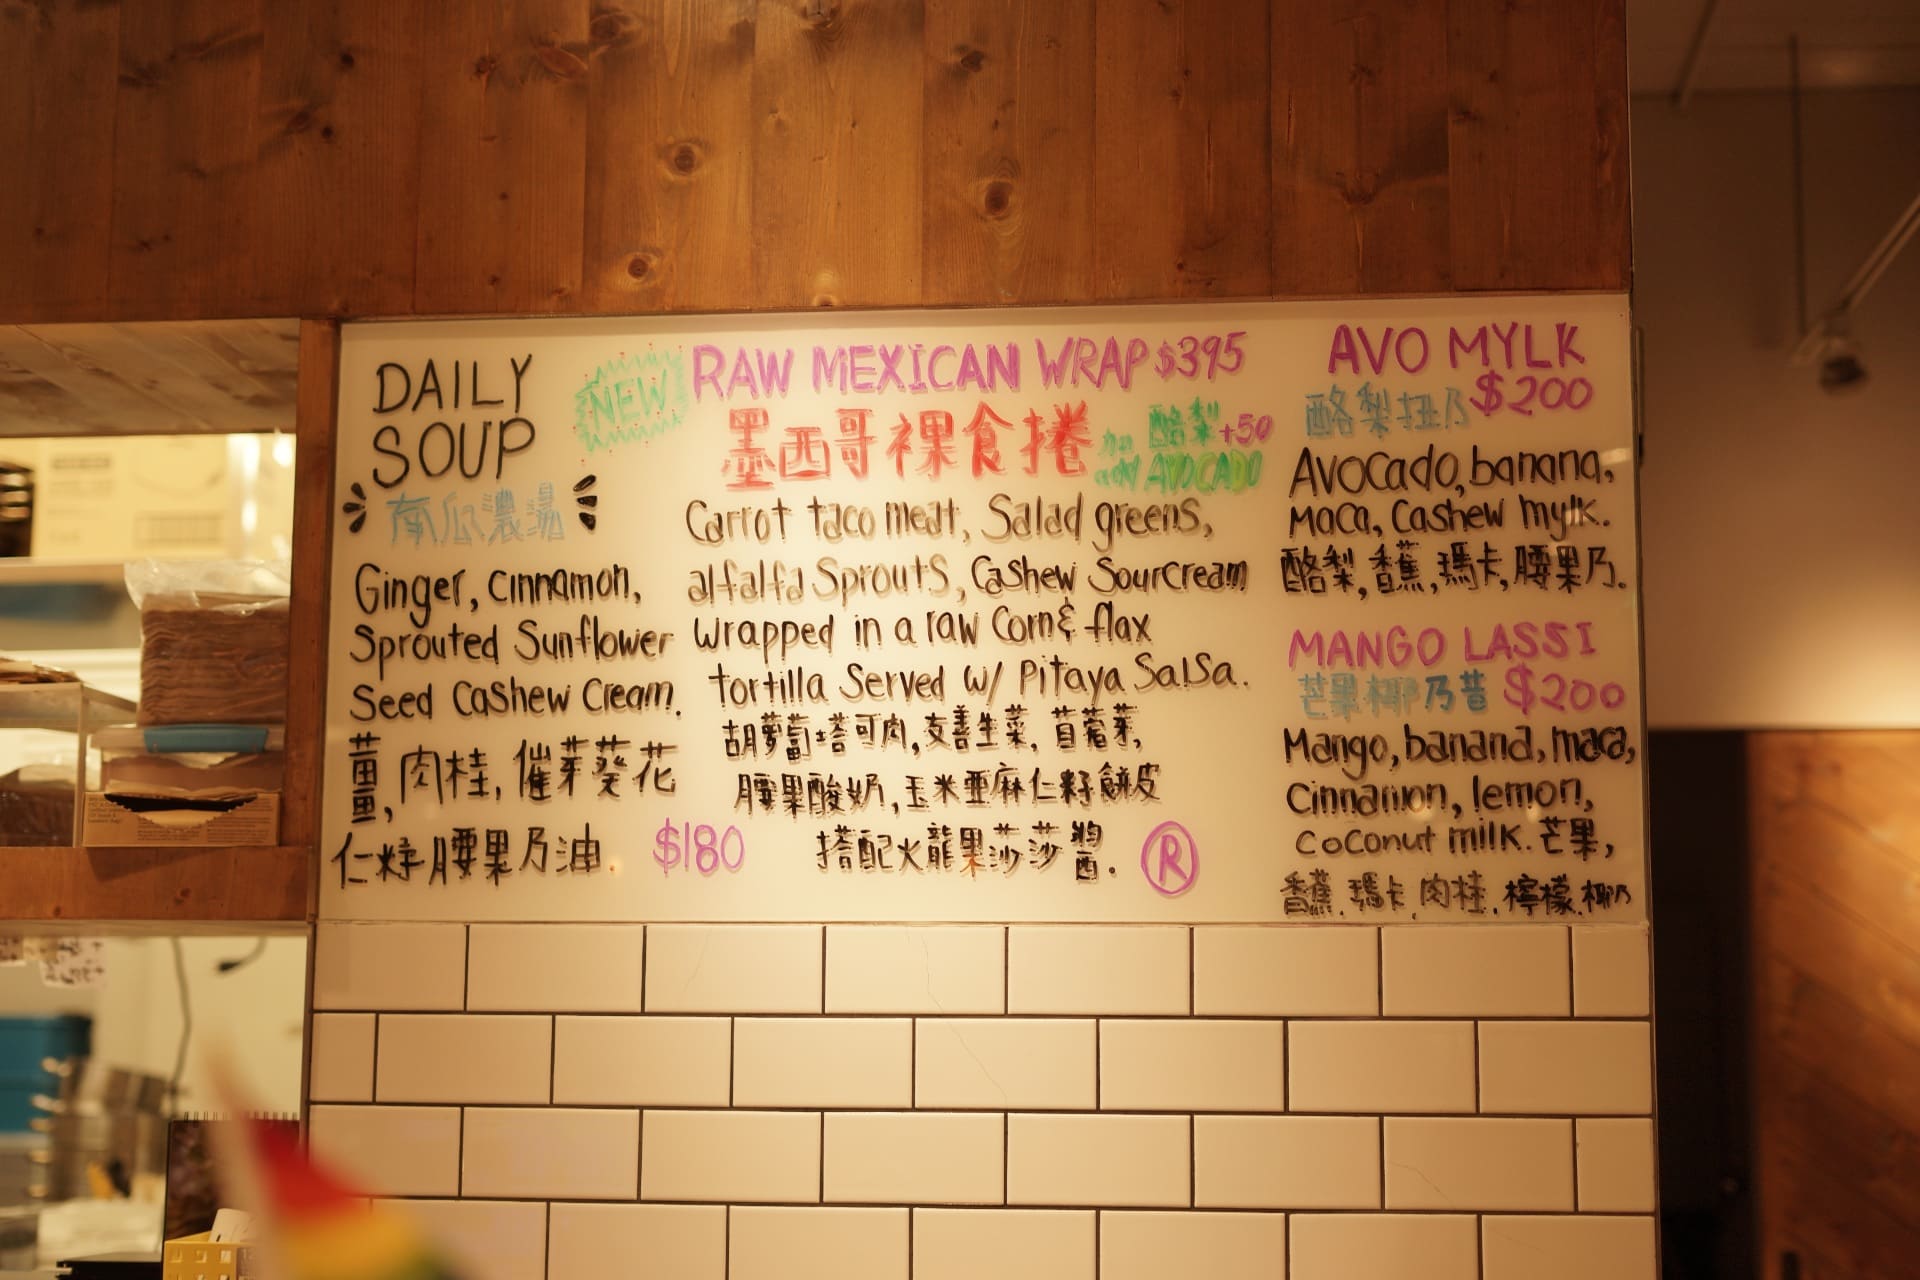 DAILY
SOUP
南瓜濃湯
Ginger, cinnamon,
Sprouted Sunflower
Seed Cashew Cream.
薑,肉桂,催芽葵花
仁籽腰果乃油.
$180
NEW
RAW MEXICAN WRAP $395
墨西哥裸食捲
加 酪梨 +50
add AVOCADO
Carrot taco meat, Salad greens,
alfalfa Sprouts, Cashew Sourcream
wrapped in a raw Corn & flax
tortilla Served w/ Pitaya Salsa.
胡蘿蔔塔可肉,友善生菜,苜蓿芽,
腰果酸奶,玉米亞麻仁籽餅皮
搭配火龍果莎莎醬.
R
AVO MYLK
酪梨扭乃 $200
Avocado, banana,
Maca, Cashew mylk.
酪梨,香蕉,瑪卡,腰果乃.
MANGO LASSI
芒果椰乃昔 $200
Mango, banana, maca,
Cinnamon, lemon,
Coconut milk. 芒果,
香蕉,瑪卡,肉桂,檸檬,椰乃